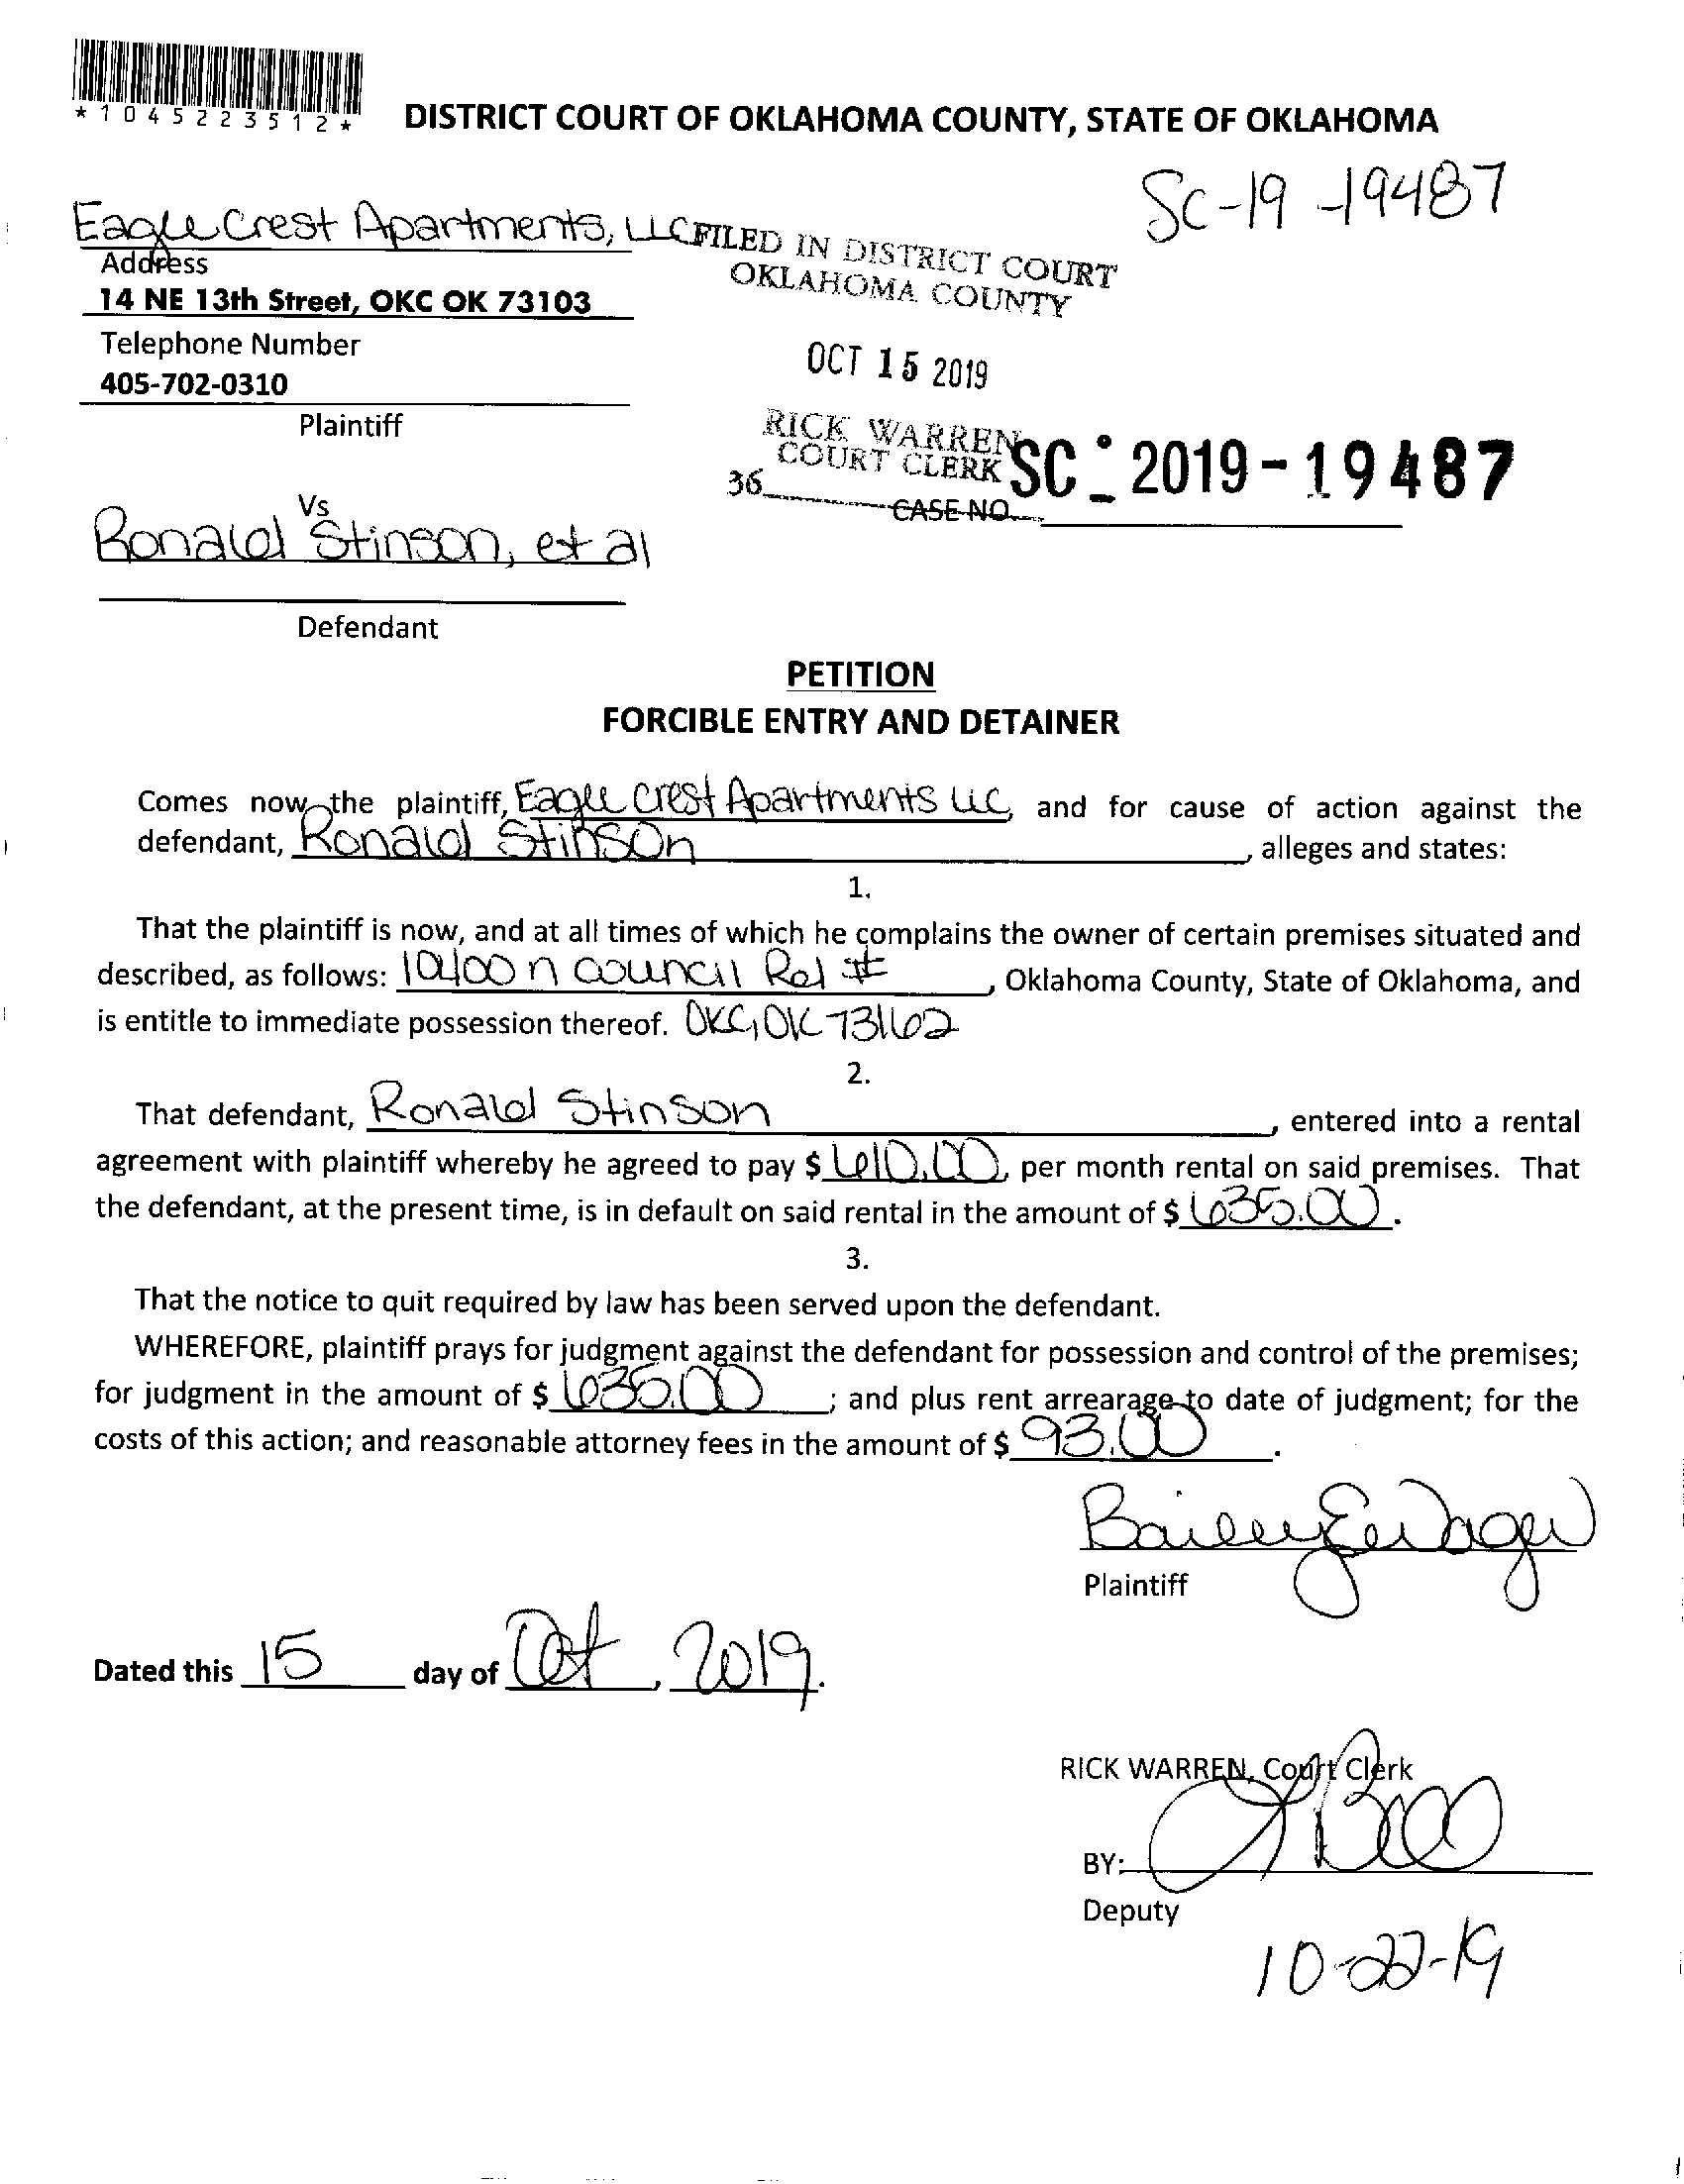 *1045223512*
DISTRICT COURT OF OKLAHOMA COUNTY, STATE OF OKLAHOMA
SC-19-19487
Eagle Crest Apartments, LLC
FILED IN DISTRICT COURT
OKLAHOMA COUNTY
Address
14 NE 13th Street, OKC OK 73103
Telephone Number
405-702-0310
OCT 15 2019
Plaintiff
RICK WARREN
COURT CLERK
SC - 2019-19487
36
CASE NO.
Vs
Ronald Stinson, et al
Defendant
PETITION
FORCIBLE ENTRY AND DETAINER
Comes now the plaintiff, Eagle Crest Apartments LLC, and for cause of action against the
defendant, Ronald Stinson, alleges and states:
1.
That the plaintiff is now, and at all times of which he complains the owner of certain premises situated and
described, as follows: 10400 n council Rd #, Oklahoma County, State of Oklahoma, and
is entitle to immediate possession thereof. OKC, OK 73162
2.
That defendant, Ronald Stinson, entered into a rental
agreement with plaintiff whereby he agreed to pay $ 610.00, per month rental on said premises. That
the defendant, at the present time, is in default on said rental in the amount of $ 635.00.
3.
That the notice to quit required by law has been served upon the defendant.
WHEREFORE, plaintiff prays for judgment against the defendant for possession and control of the premises;
for judgment in the amount of $ 635.00; and plus rent arrearage to date of judgment; for the
costs of this action; and reasonable attorney fees in the amount of $ 93.00.
Plaintiff
Dated this 15 day of Oct, 2019.
RICK WARREN, Court Clerk
BY:
Deputy
10-22-19